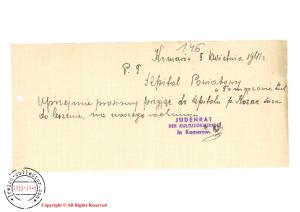 146
Komarno 3 Kwietnia 1941r.
P. T.
Szpital Powiatowy
Uprzejmie prosimy przyjąć do szpitala p. Kozac
do leczenia, na naszego rachunku
JUDENRAT
DER KULTUSGEMEINDE
in Komarno
Copyright © All Rights Reserved